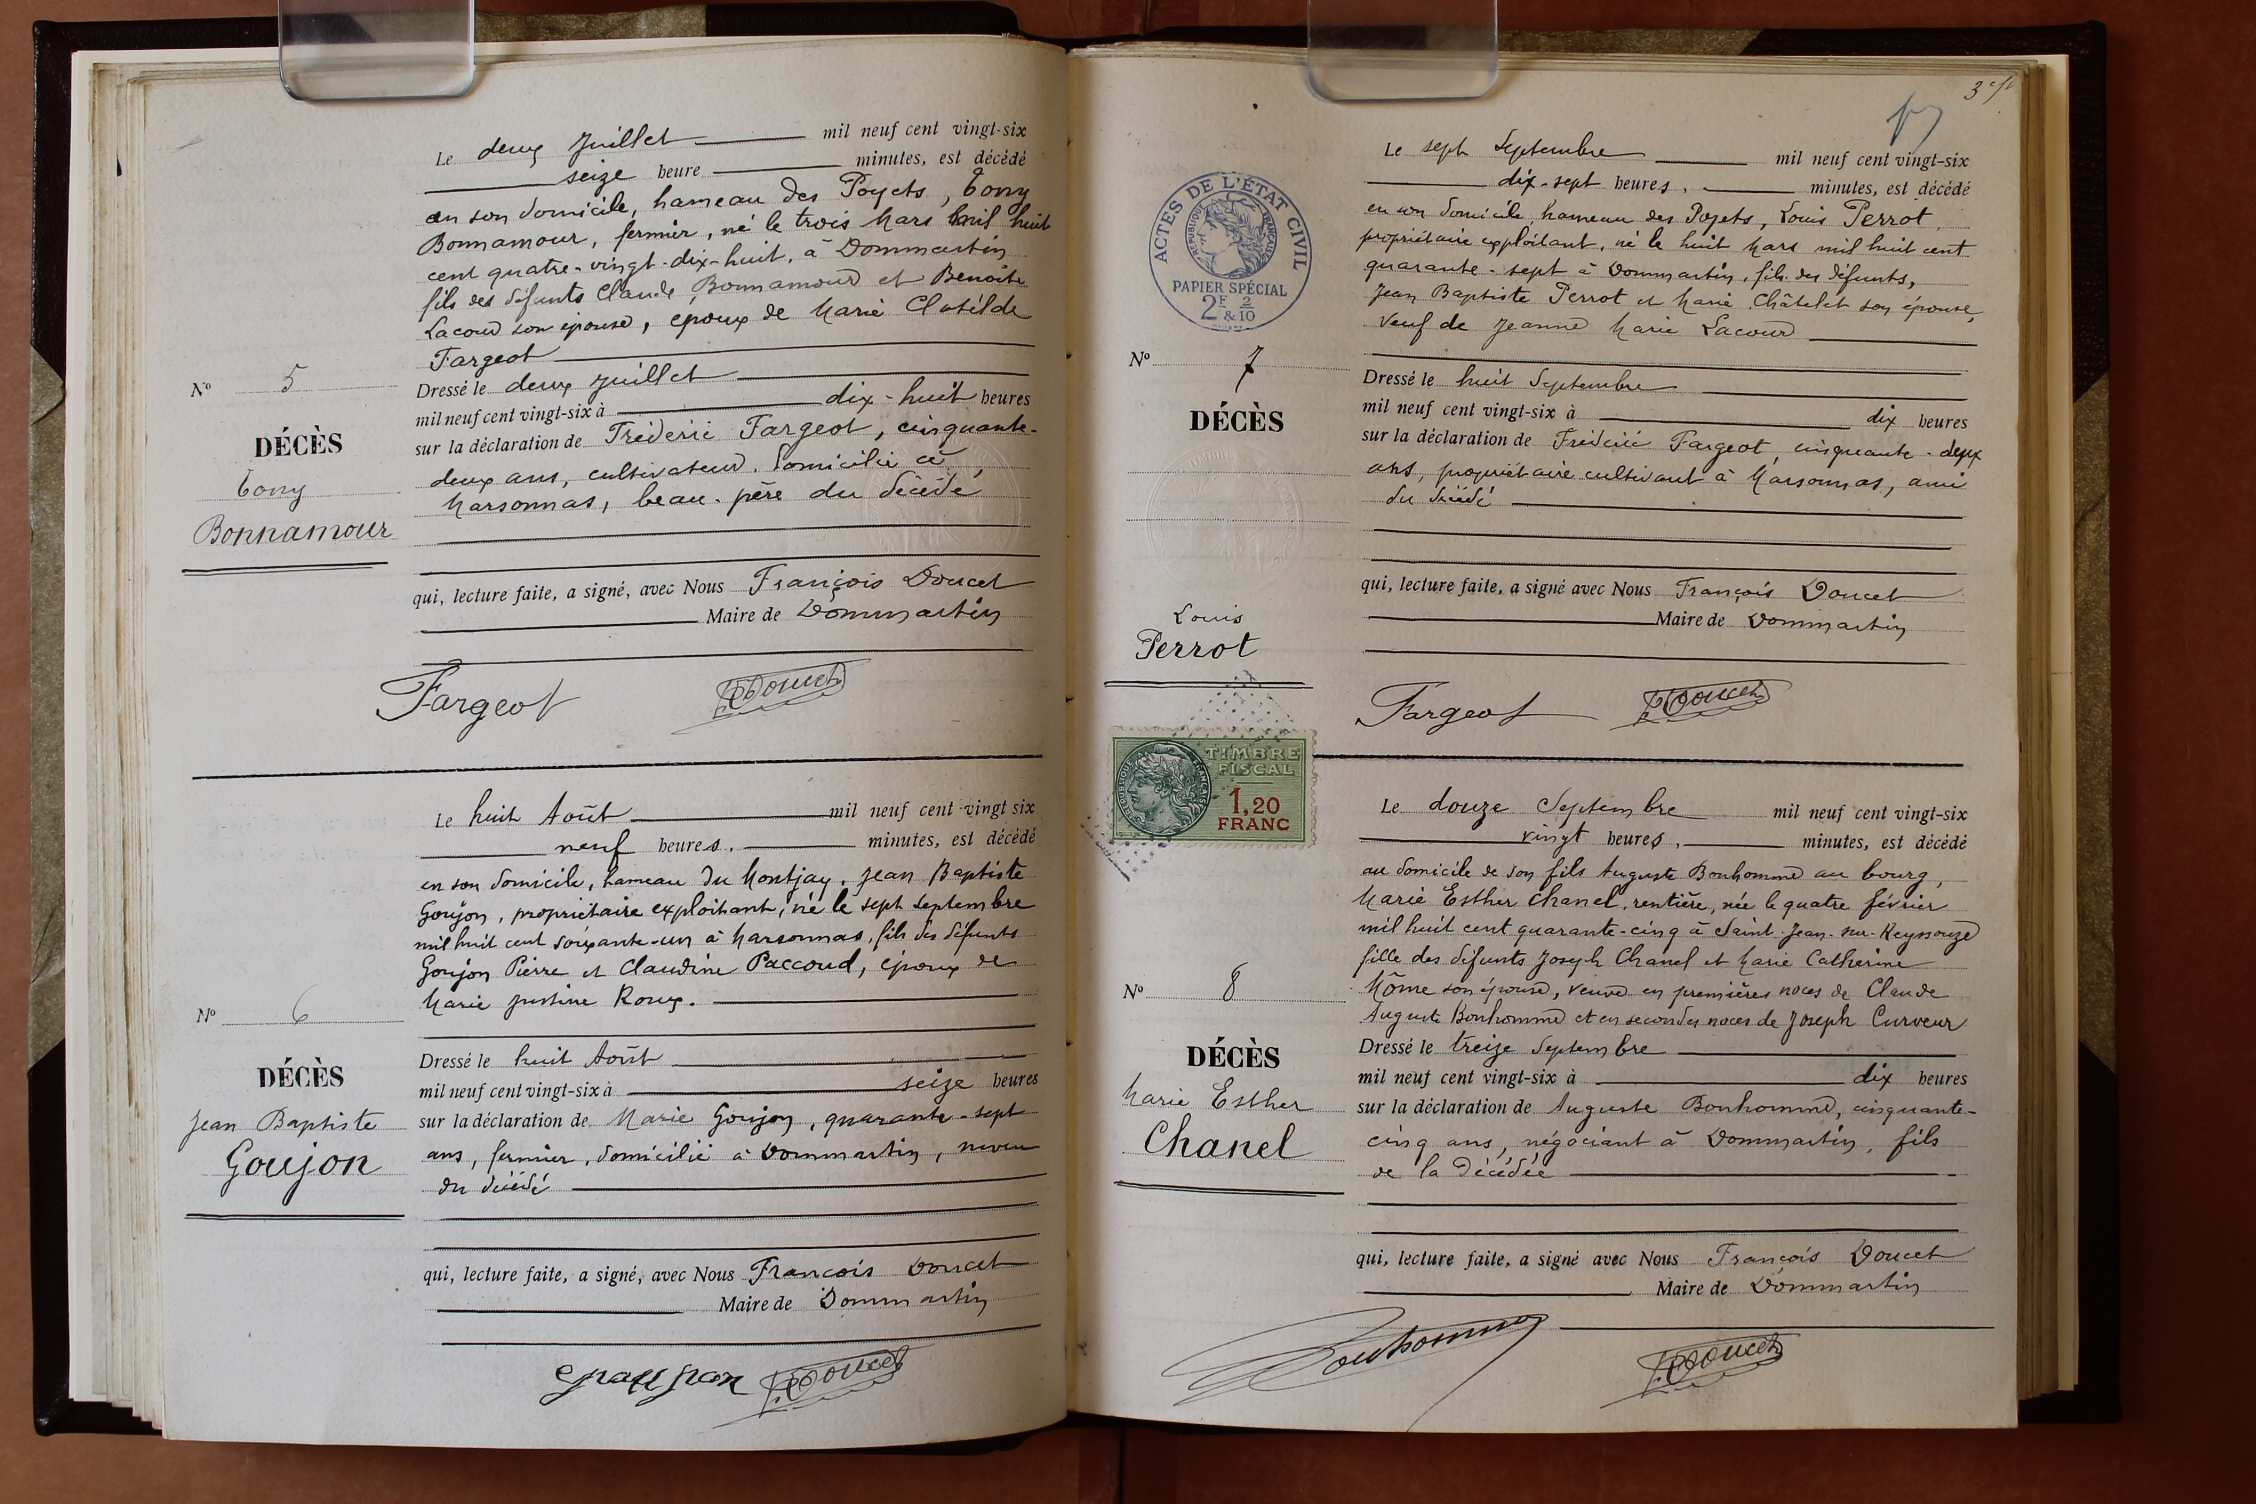 Le deux Juillet mil neuf cent vingt-six
seize heure minutes, est décédé
en son domicile, hameau des Poyets, Tony
Bonnamour, fermier, né le trois Mars mil huit
cent quatre-vingt-dix-huit, à Dommartin
fils des défunts Claude Bonnamour et Benoite
Lacour son épouse, époux de Marie Clotilde
Fargeot
Nº 5
DÉCÈS
Tony
Bonnamour
Dressé le deux Juillet
mil neuf cent vingt-six à dix-huit heures
sur la déclaration de Frédéric Fargeot, cinquante-
deux ans, cultivateur, domicilié à
Marsonnas, beau-père du décédé
qui, lecture faite, a signé, avec Nous François Doucet
Maire de Dommartin
Fargeot F. Doucet
Le huit Août mil neuf cent vingt six
neuf heures. minutes, est décédé
en son domicile, hameau du Montjay, Jean Baptiste
Goujon, propriétaire exploitant, né le sept septembre
mil huit cent soixante-un à Marsonnas, fils des défunts
Goujon Pierre et Claudine Paccoud, époux de
Marie Justine Roux.
Nº 6
DÉCÈS
Jean Baptiste
Goujon
Dressé le huit Août
mil neuf cent vingt-six à seize heures
sur la déclaration de Marie Goujon, quarante-sept
ans, fermier, domicilié à Dommartin, neveu
du décédé
qui, lecture faite, a signé, avec Nous François Doucet
Maire de Dommartin
F. Doucet
ACTES DE L'ÉTAT CIVIL
RÉPUBLIQUE FRANÇAISE
PAPIER SPÉCIAL
2F & 2/10
Le sept Septembre mil neuf cent vingt-six
dix-sept heures. minutes, est décédé
en son domicile, hameau des Poyets, Louis Perrot,
propriétaire exploitant, né le huit Mars mil huit cent
quarante-sept à Dommartin, fils des défunts,
Jean Baptiste Perrot et Marie Châtelet son épouse,
veuf de Jeanne Marie Lacour
Nº 7
DÉCÈS
Louis
Perrot
Dressé le huit Septembre
mil neuf cent vingt-six à dix heures
sur la déclaration de Frédéric Fargeot, cinquante-deux
ans, propriétaire cultivant à Marsonnas, ami
du décédé
qui, lecture faite, a signé avec Nous François Doucet
Maire de Dommartin
Fargeot F. Doucet
TIMBRE
FISCAL
1,20
FRANC
RÉPUBLIQUE FRANÇAISE
Le douze Septembre mil neuf cent vingt-six
vingt heures, minutes, est décédé
au domicile de son fils Auguste Bonhomme au bourg,
Marie Esther Chanel, rentière, née le quatre février
mil huit cent quarante-cinq à Saint-Jean-sur-Reyssouze
fille des défunts Joseph Chanel et Marie Catherine
Môme son épouse, veuve en premières noces de Claude
Auguste Bonhomme et en secondes noces de Joseph Curveur
Nº 8
DÉCÈS
Marie Esther
Chanel
Dressé le treize Septembre
mil neuf cent vingt-six à dix heures
sur la déclaration de Auguste Bonhomme, cinquante-
cinq ans, négociant à Dommartin, fils
de la décédée
qui, lecture faite, a signé avec Nous François Doucet
Maire de Dommartin
Bonhomme F. Doucet